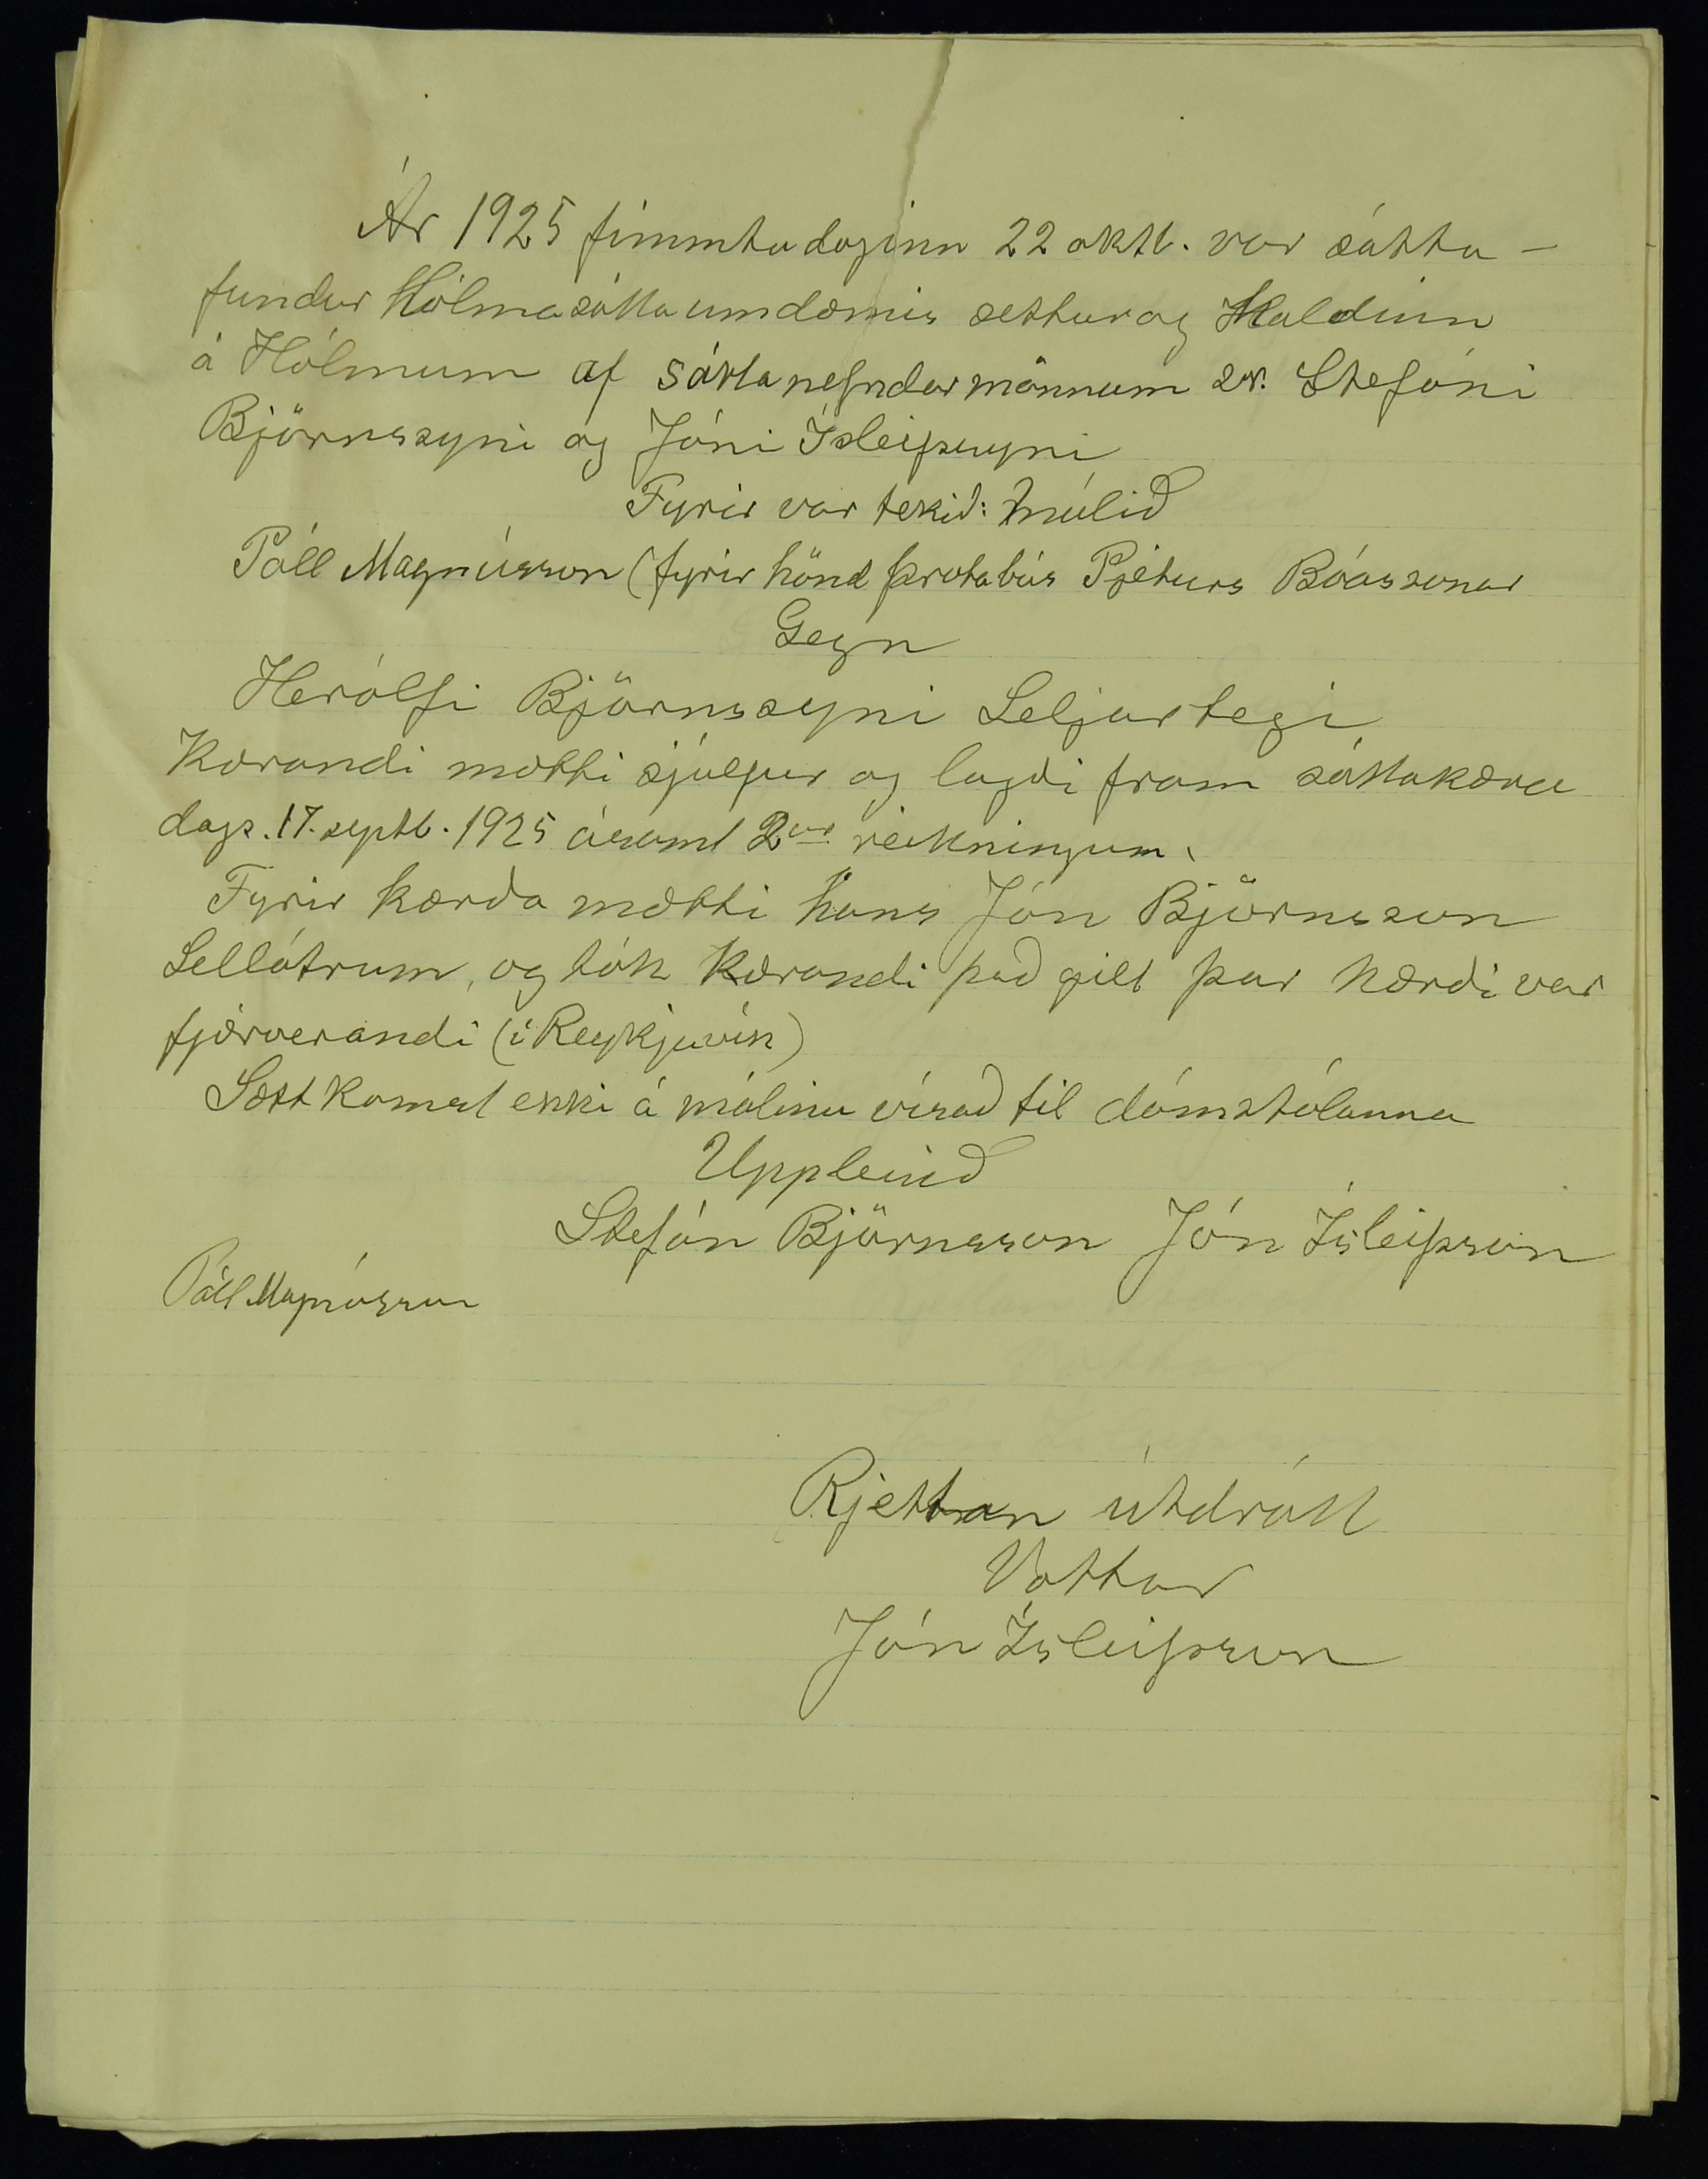 Ár 1925 fimmtudaginn 22 oktb. var sátta-
fundur Hólmasáttaumdæmis settur og Haldinn
á Hólmum af sáttanefndarmönnum sr. Stefáni
Björnssyni og Jóni Ísleifssyni
Fyrir var tekið: málið
Páll Magnússon (fyrir hönd þrotabús Pjeturs Bóassonar
Gegn
Herólfi Björnssyni Seljarteigi
Kærandi mætti sjálfur og lagði fram sáttakæru
dags. 17. septb. 1925 ásamt 2ur reikningum.
Fyrir kærða mætti hans Jón Björnsson
Sellátrum, og tók Kærandi það gilt þar kærði var
fjærverandi (í Reykjavík)
Sætt komst ekki á málinu vísað til dómstólanna
Uppleið
Stefán Björnsson Jón Ísleifsson
Páll Magnússon
Rjettan útdrátt
Vottar
Jón Ísleifsson